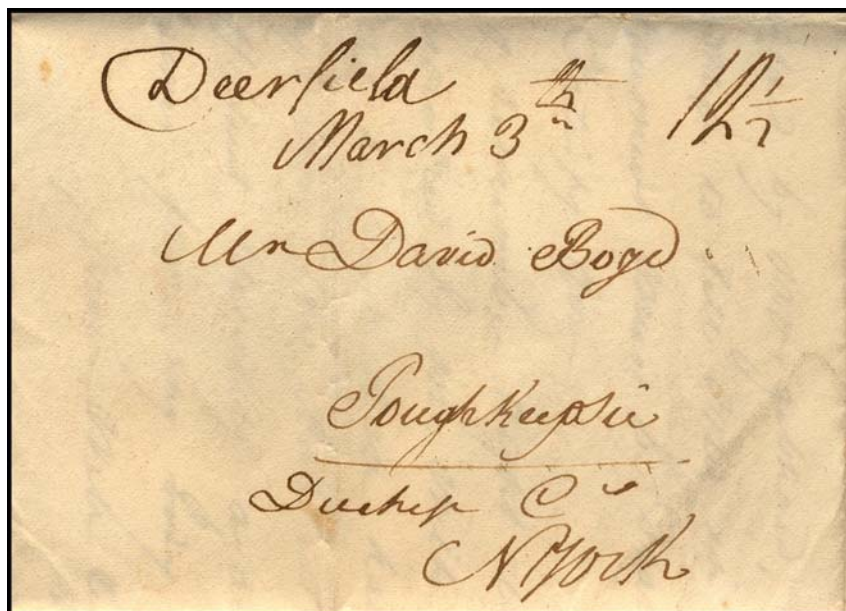 Deerfield
March 3th 12 1/2
Mr David Boyd
Poughkeepsie
Duchess Co
N York